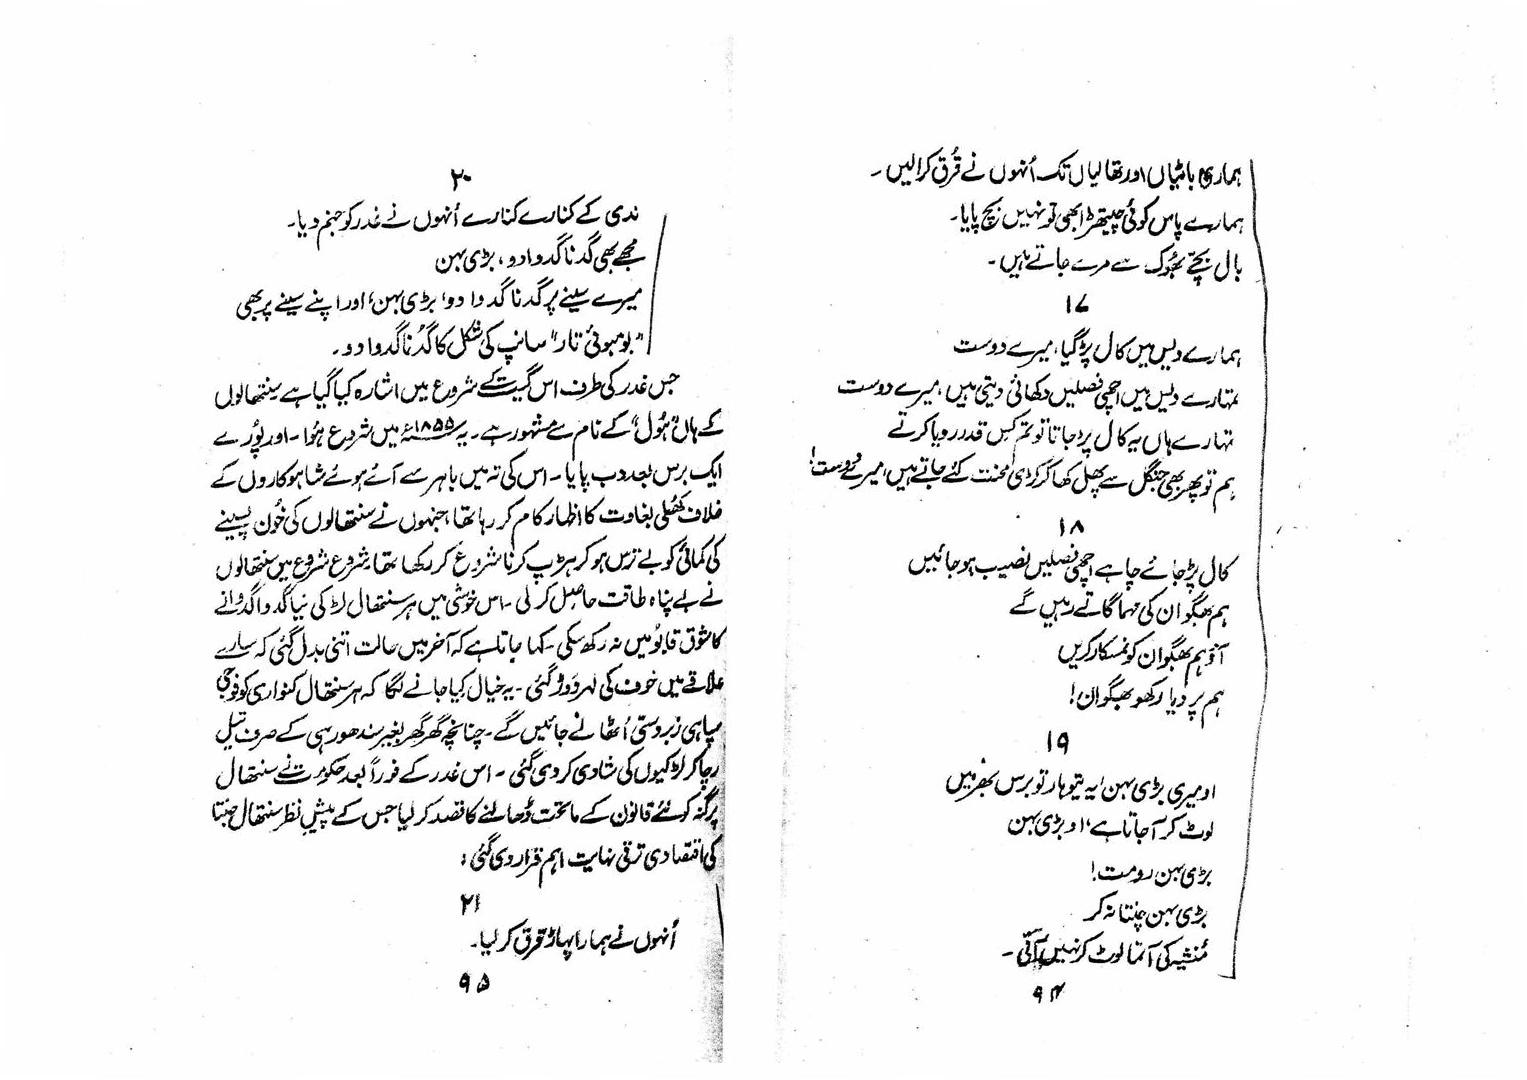 ہماری بالٹیاں اور تھالیاں تک اُنہوں نے قُرق کرالیں۔
ہمارے پاس کوئی چیتھڑا بھی تو نہیں بچ پایا۔
بال بچّے بھُوک سے مرے جاتے ہیں۔
۱۷
ہمارے دیس میں کال پڑ گیا، میرے دوست
تمہارے دیس میں اچھی فصلیں دکھائی دیتی ہیں، میرے دوست
تمہارے ہاں یہ کال پڑ جاتا تو تم کس قدر رویا کرتے
ہم تو پھر بھی جنگل سے پھل کھا کر کڑی محنت کئے جاتے ہیں، میرے دوست!
۱۸
کال پڑ جائے چاہے اچھی فصلیں نصیب ہو جائیں
ہم بھگوان کی مہما گاتے رہیں گے
آؤ ہم بھگوان کو نمسکار کریں
ہم پر دیا رکھو بھگوان!
۱۹
او میری بڑی بہن، یہ تیوہار تو برس بھر میں
لوٹ کر آجاتا ہے، او بڑی بہن
بڑی بہن رو مت!
بڑی بہن چنتا نہ کر
مُنشیہ کی آتما لوٹ کر نہیں آتی۔
۹۴
۲۰
ندی کے کنارے کنارے اُنہوں نے غدر کو جنم دیا۔
مجھے بھی گدنا گدوا دو، بڑی بہن
میرے سینے پر گدنا گدوا دو، بڑی بہن، اور اپنے سینے پر بھی
"بومبوئی تار" سانپ کی شکل کا گُدنا گدوا دو۔
جس غدر کی طرف اس گیت کے شروع میں اشارہ کیا گیا ہے سنتھالوں
کے ہاں "ہُول" کے نام سے مشہور ہے۔ یہ ۱۸۵۵ء میں شروع ہُوا۔ اور پُورے
ایک برس بعد دب پایا۔ اس کی تہ میں باہر سے آئے ہوئے شاہوکاروں کے
خلاف کھُلی بغاوت کا اظہار کام کر رہا تھا، جنہوں نے سنتھالوں کی خُون پسینے
کی کمائی کو بے ترس ہو کر ہڑپ کرنا شروع کر رکھا تھا۔ شروع شروع میں سنتھالوں
نے بے پناہ طاقت حاصل کر لی۔ اس خوشی میں ہر سنتھال لڑکی نیا گدوا گدوانے
کا شوق قابو میں نہ رکھ سکی۔ کہا جاتا ہے کہ آخر میں حالت اتنی بدل گئی کہ سارے
علاقے میں خوف کی لہر دوڑ گئی۔ یہ خیال کیا جانے لگا کہ ہر سنتھال کنواری کو فوجی
سپاہی زبردستی اُٹھا لے جائیں گے۔ چنانچہ گھر گھر بغیر سندھور ہی کے صرف تیل
رچا کر لڑکیوں کی شادی کر دی گئی۔ اس غدر کے فوراً بعد حکومت نے سنتھال
پرگنہ کو نئے قانون کے ماتحت ڈھالنے کا قصد کر لیا جس کے پیشِ نظر سنتھال جنتا
کی اقتصادی ترقی نہایت اہم قرار دی گئی:
۲۱
اُنہوں نے ہمارا پہاڑ قرق کر لیا۔
۹۵